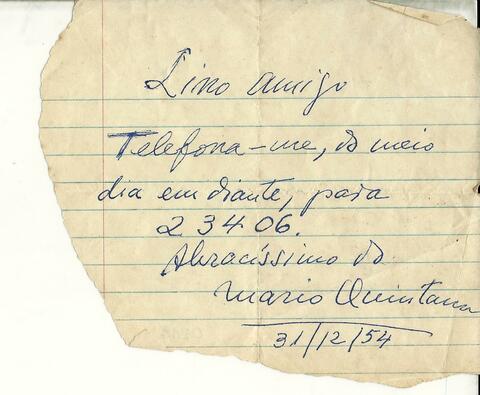 Lino amigo
Telefona-me, do meio
dia em diante, para
23406.
Abracíssimo do
Mario Quintana
31/12/54